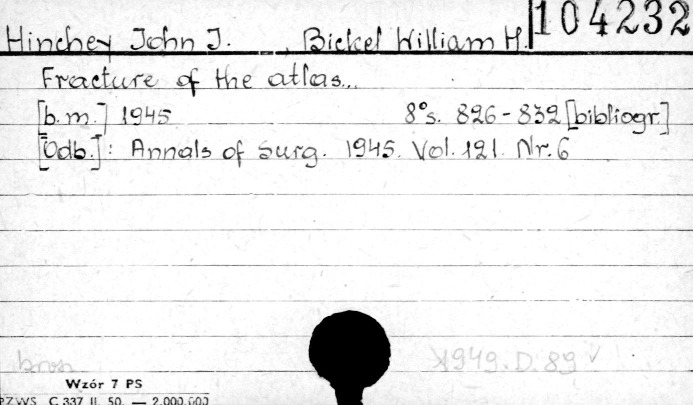 Hinchey John J., Bickel William H. 104232
Fracture of the atlas...
[b.m.] 1945 8°s. 826-832 [bibliogr.]
[Odb.]: Annals of Surg. 1945. Vol. 121. Nr. 6
brosz
1949. D. 89 V
Wzór 7 PS
PZWS C 337 II. 50. — 2.000.000